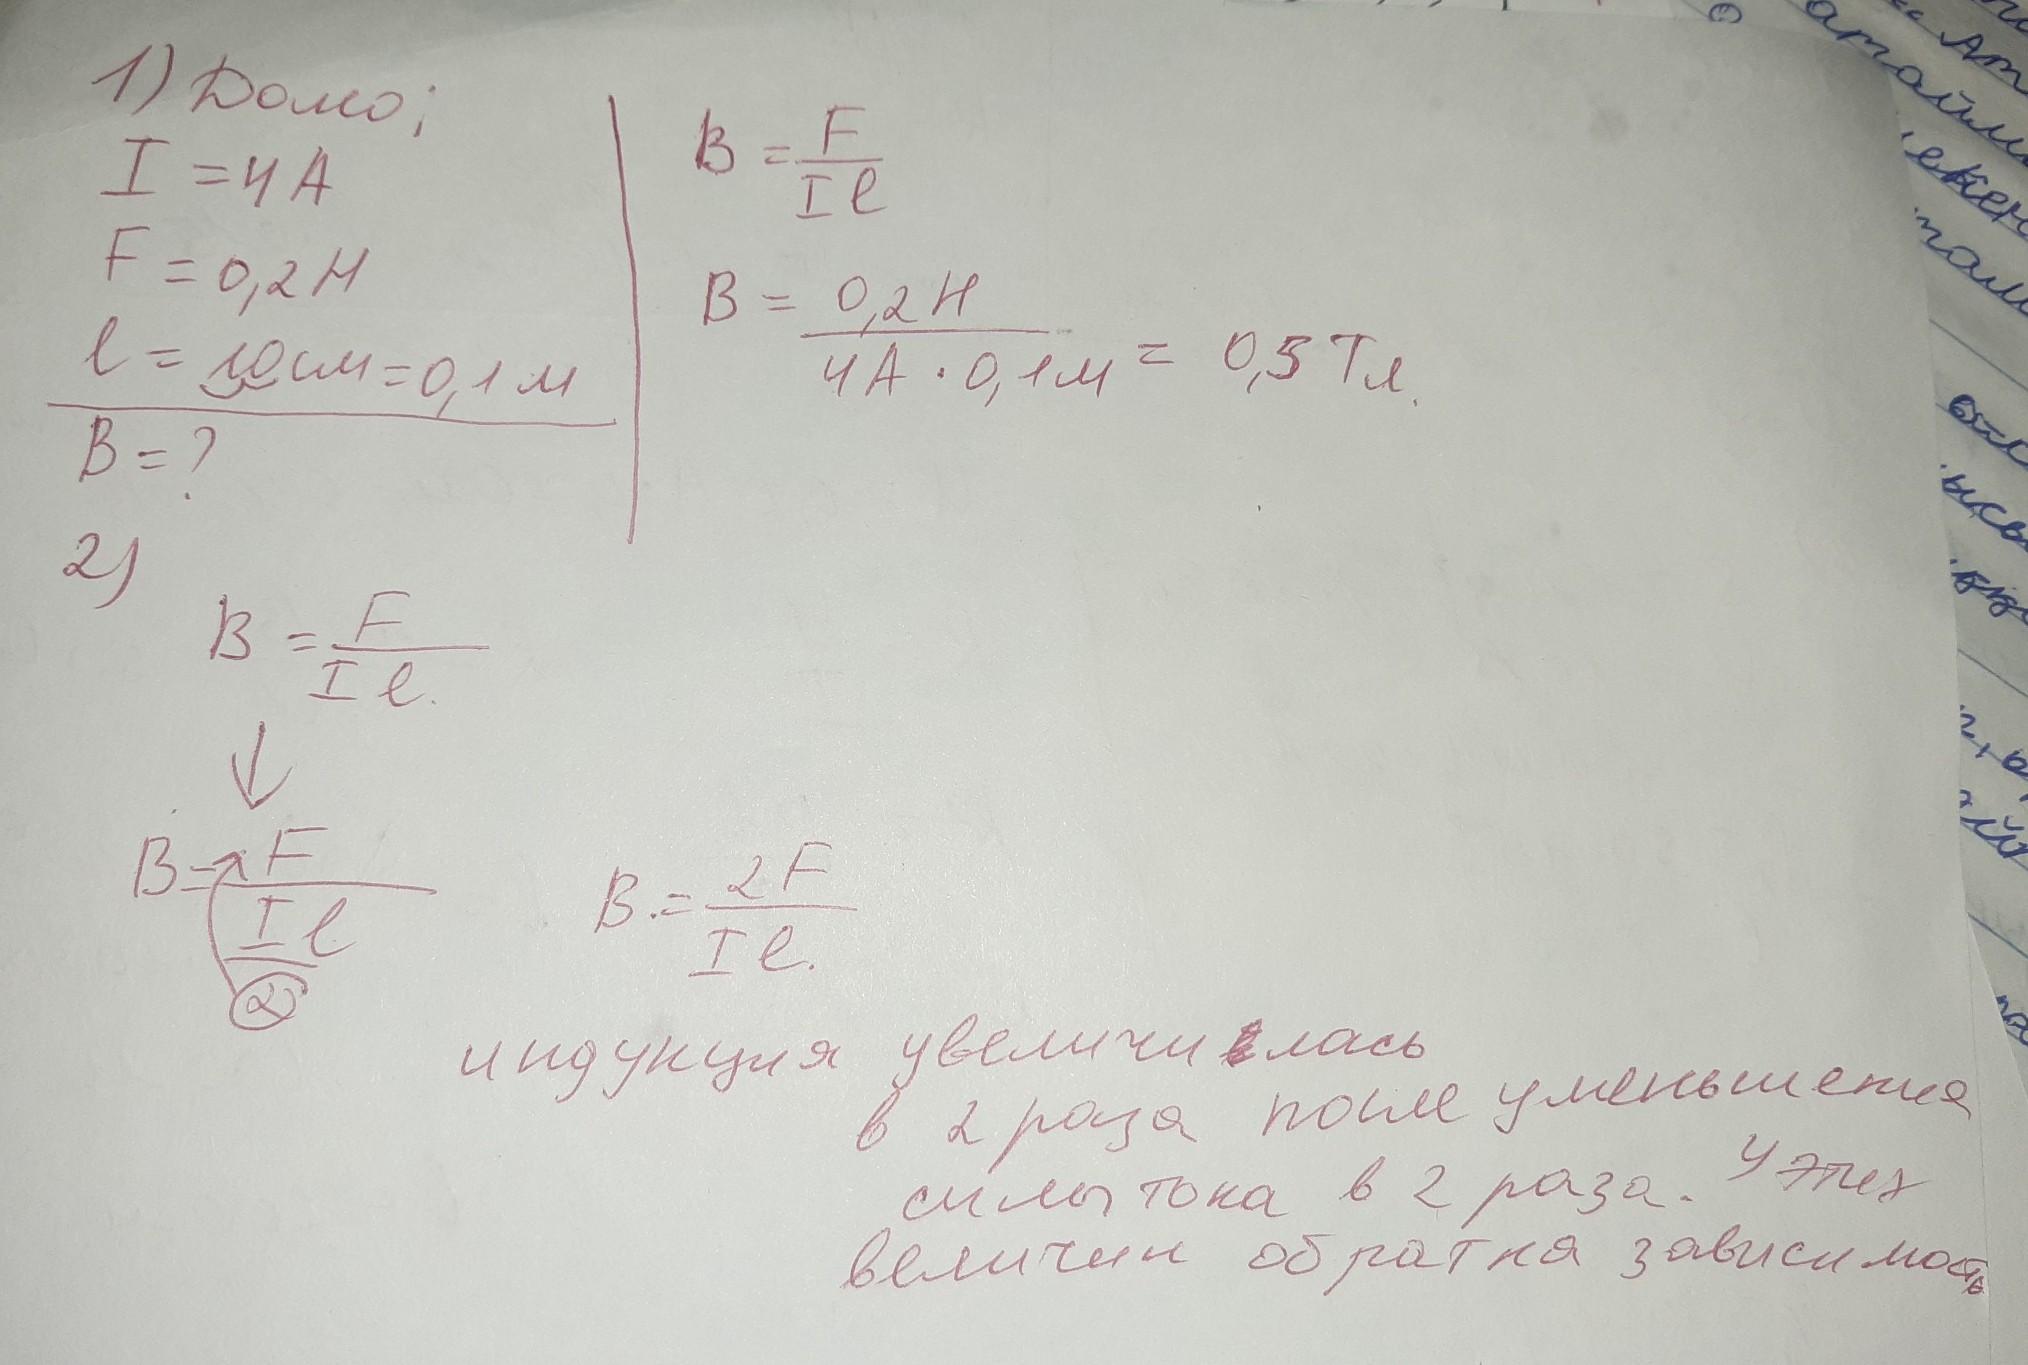 1) Дано;
I = 4 А
F = 0,2 Н
l = 10 см = 0,1 м
B = ?
B = F / I l
B = 0,2 Н / 4 А · 0,1 м = 0,5 Тл.
2)
B = F / I l.
↓
B = F / I l / 2
B = 2F / I l.
индукция увеличилась
в 2 раза после уменьшения
силы тока в 2 раза. У этих
величин обратная зависимость